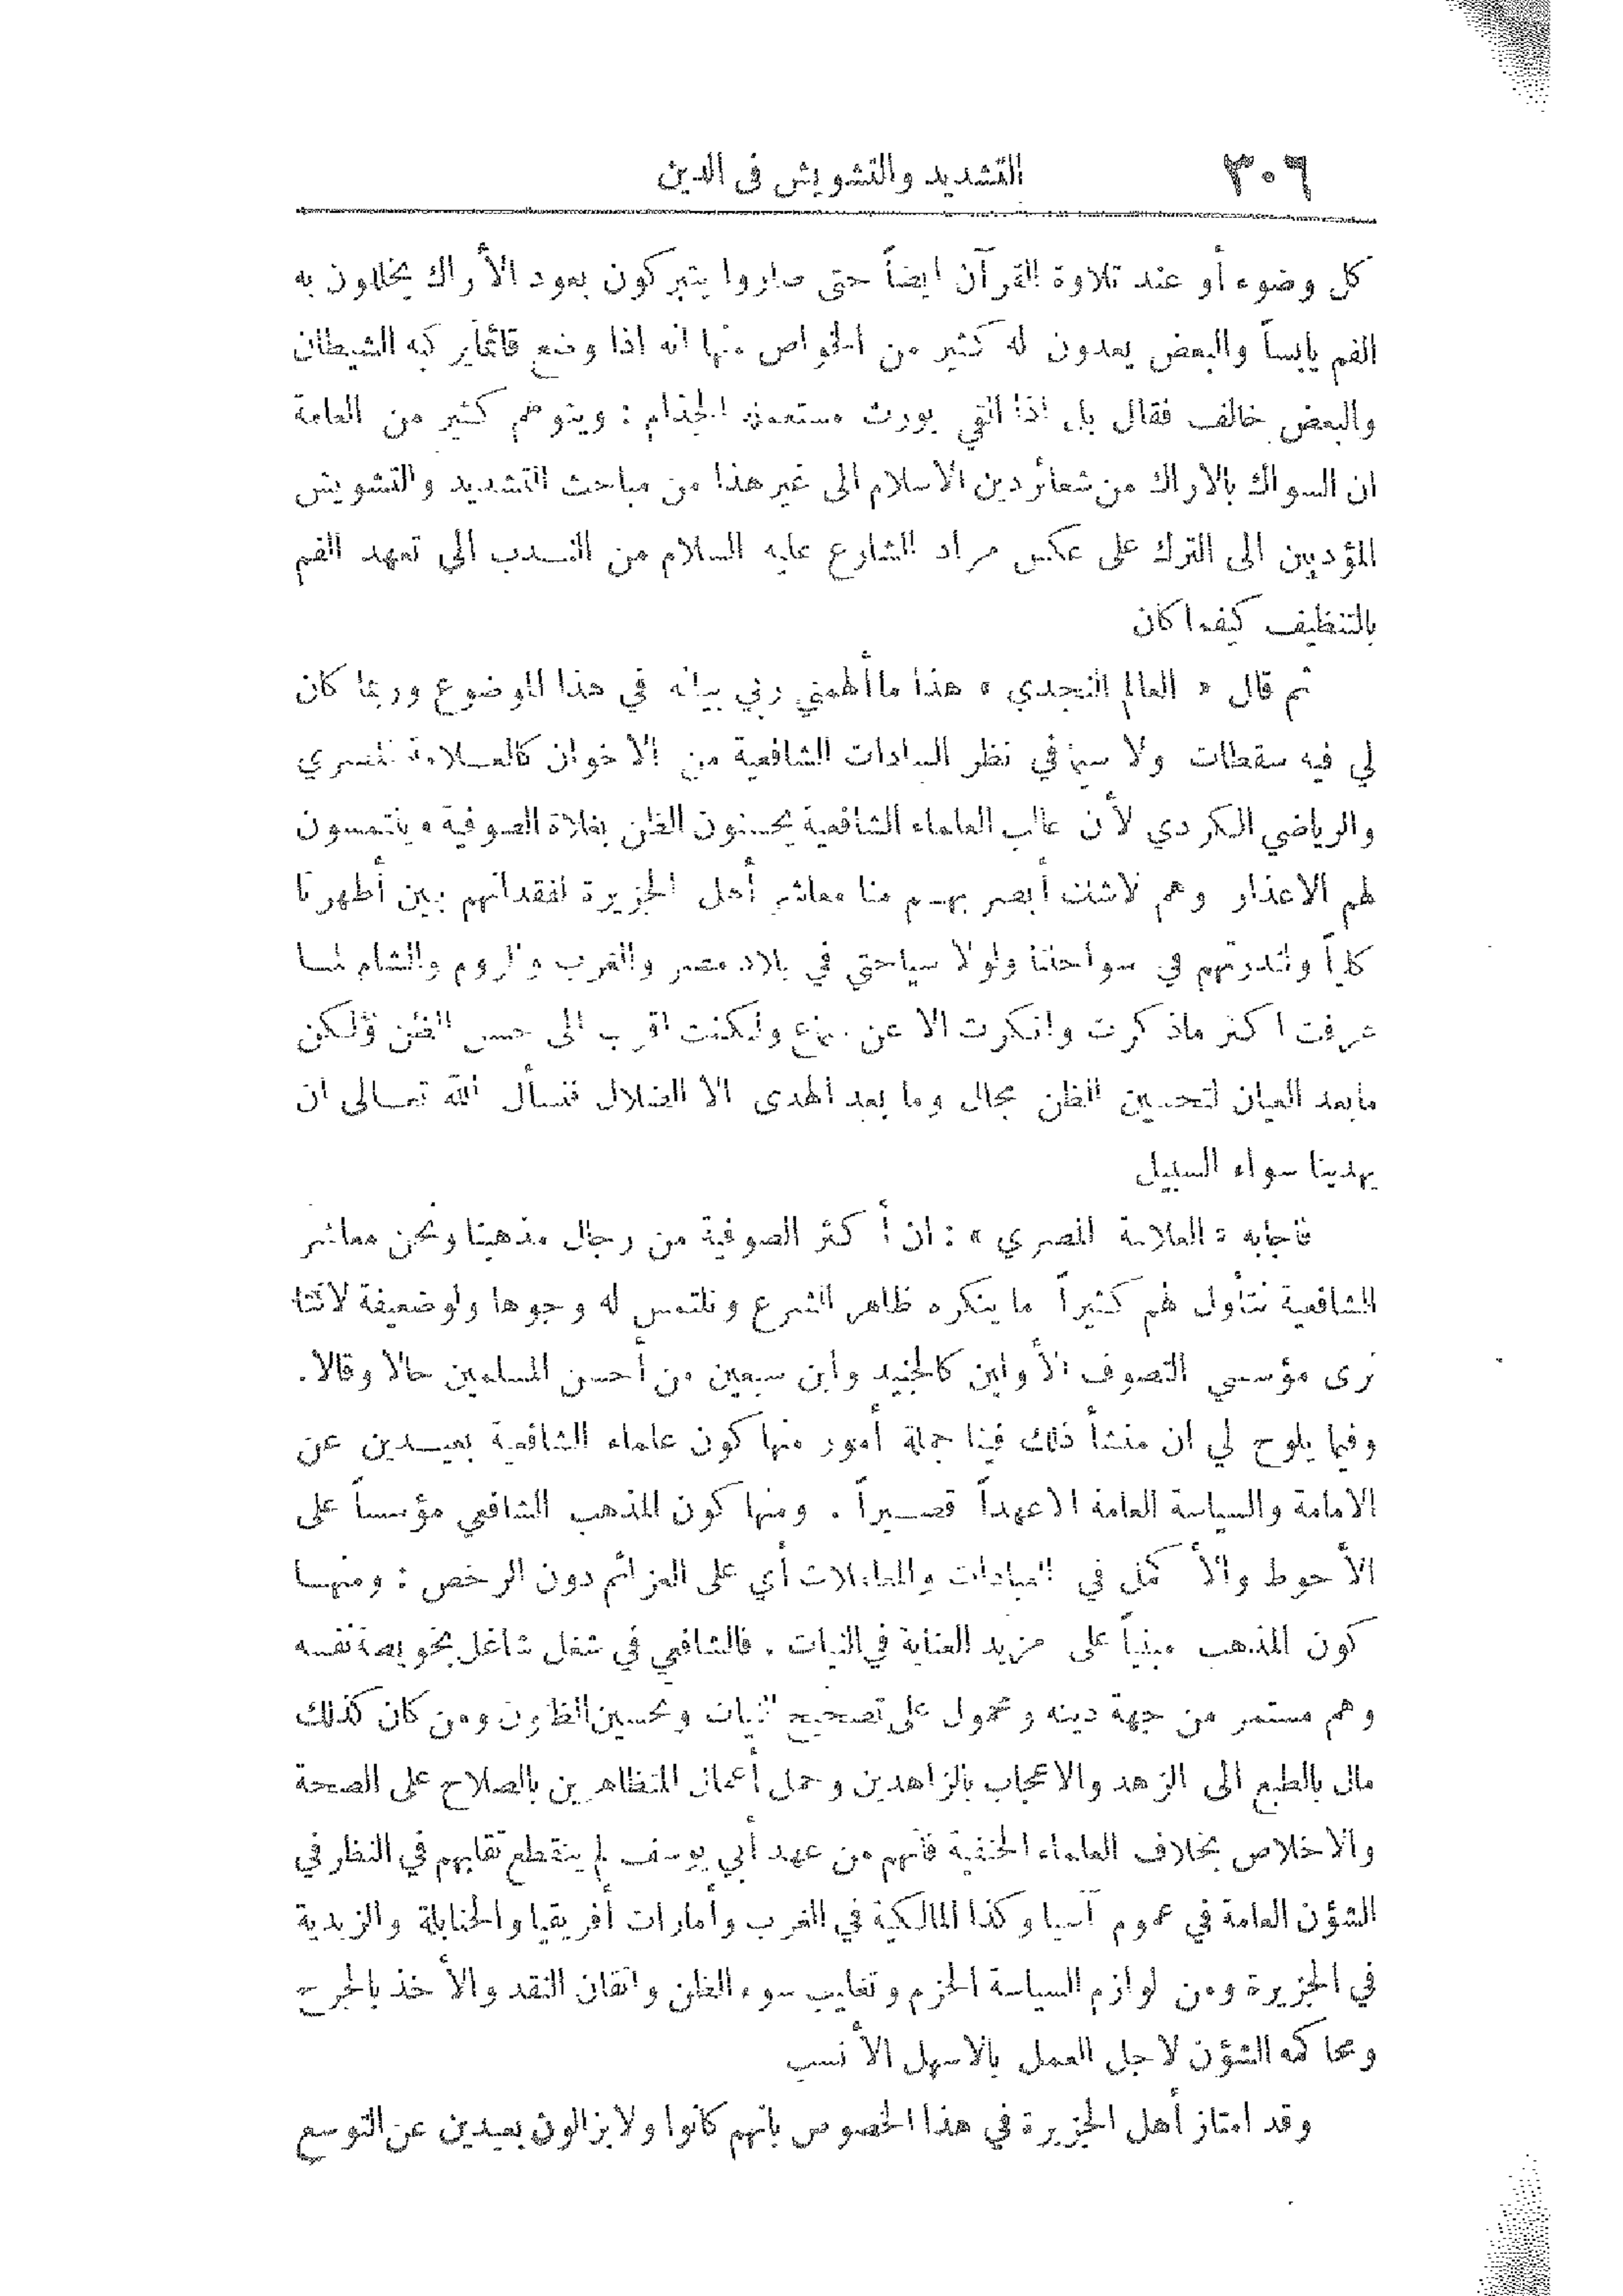 ٣٠٦ التشديد والتشويش فى الدين
كل وضوء أو عند تلاوة القرآن ايضاً حتى صاروا يتبركون بعود الأراك يخللون به
الفم يابساً والبعض يعدون له كثير من الخواص منها انه اذا وضع قائماً يركبه الشيطان
والبعض خالف فقال بل اذا القي يورث مستعمله الجذام : ويتوهم كثير من العامة
ان السواك بالاراك من شعائر دين الاسلام الى غير هذا من مباحث التشديد والتشويش
المؤديين الى الترك على عكس مراد الشارع عليه السلام من الندب الى تعهد الفم
بالتنظيف كيفما كان
ثم قال « العالم النجدي » هذا ما ألهمني ربي بيانه في هذا الموضوع وربما كان
لي فيه سقطات ولا سيما في نظر السادات الشافعية من الاخوان كالعلامة المصري
والرياضي الكردي لأن غالب العلماء الشافعية يحسنون الظن بغلاة الصوفية ويلتمسون
لهم الاعذار وهم لاشك أبصر بهم منا معاشر أهل الجزيرة لفقدانهم بين أظهرنا
كلياً ولندرتهم في سواحلنا ولولا سياحتي في بلاد مصر والغرب والروم والشام لما
عرفت اكثر ماذكرت وانكرت الا عن سماع ولكنت اقرب الى حسن الظن ولكن
مابعد العيان لتحسين الظن مجال وما بعد الهدى الا الضلال فنسأل الله تعالى ان
يهدينا سواء السبيل
فأجابه « العلامة المصري » : ان أكثر الصوفية من رجال مذهبنا ونحن معاشر
الشافعية نتأول لهم كثيراً ما ينكره ظاهر الشرع ونلتمس له وجوها ولو ضعيفة لاننا
نرى مؤسسي التصوف الأولين كالجنيد وابن سبعين من أحسن المسلمين حالا وقالا .
وفيما يلوح لي ان منشأ ذلك فينا جملة أمور منها كون علماء الشافعية بعيدين عن
الامامة والسياسة العامة الا عهداً قصيراً . ومنها كون المذهب الشافعي مؤسساً على
الأحوط والأكمل في العبادات والمعاملات أي على العزائم دون الرخص : ومنها
كون المذهب مبنياً على مزيد العناية في النيات . فالشافعي في شغل شاغل بخويصة نفسه
وهم مستمر من جهة دينه ومحمول على تصحيح النيات وتحسين الظنون ومن كان كذلك
مال بالطبع الى الزهد والاعجاب بالزاهدين وحمل أعمال المتظاهرين بالصلاح على الصحة
والاخلاص بخلاف العلماء الحنفية فانهم من عهد أبي يوسف لم ينقطع تقلبهم في النظر في
الشؤن العامة في عموم آسيا وكذا المالكية في الغرب وأمارات أفريقيا والحنابلة والزيدية
في الجزيرة ومن لوازم السياسة الحزم وتغليب سوء الظن واتقان النقد والأخذ بالجرح
ومحاكمة الشؤن لاجل العمل بالاسهل الأنسب
وقد امتاز أهل الجزيرة في هذا الخصوص بأنهم كانوا ولا يزالون بعيدين عن التوسع